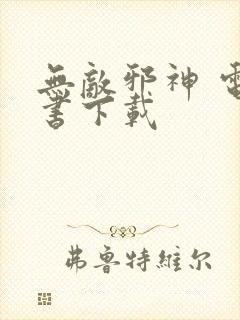 無敵邪神 電
書下載
弗魯特維尔